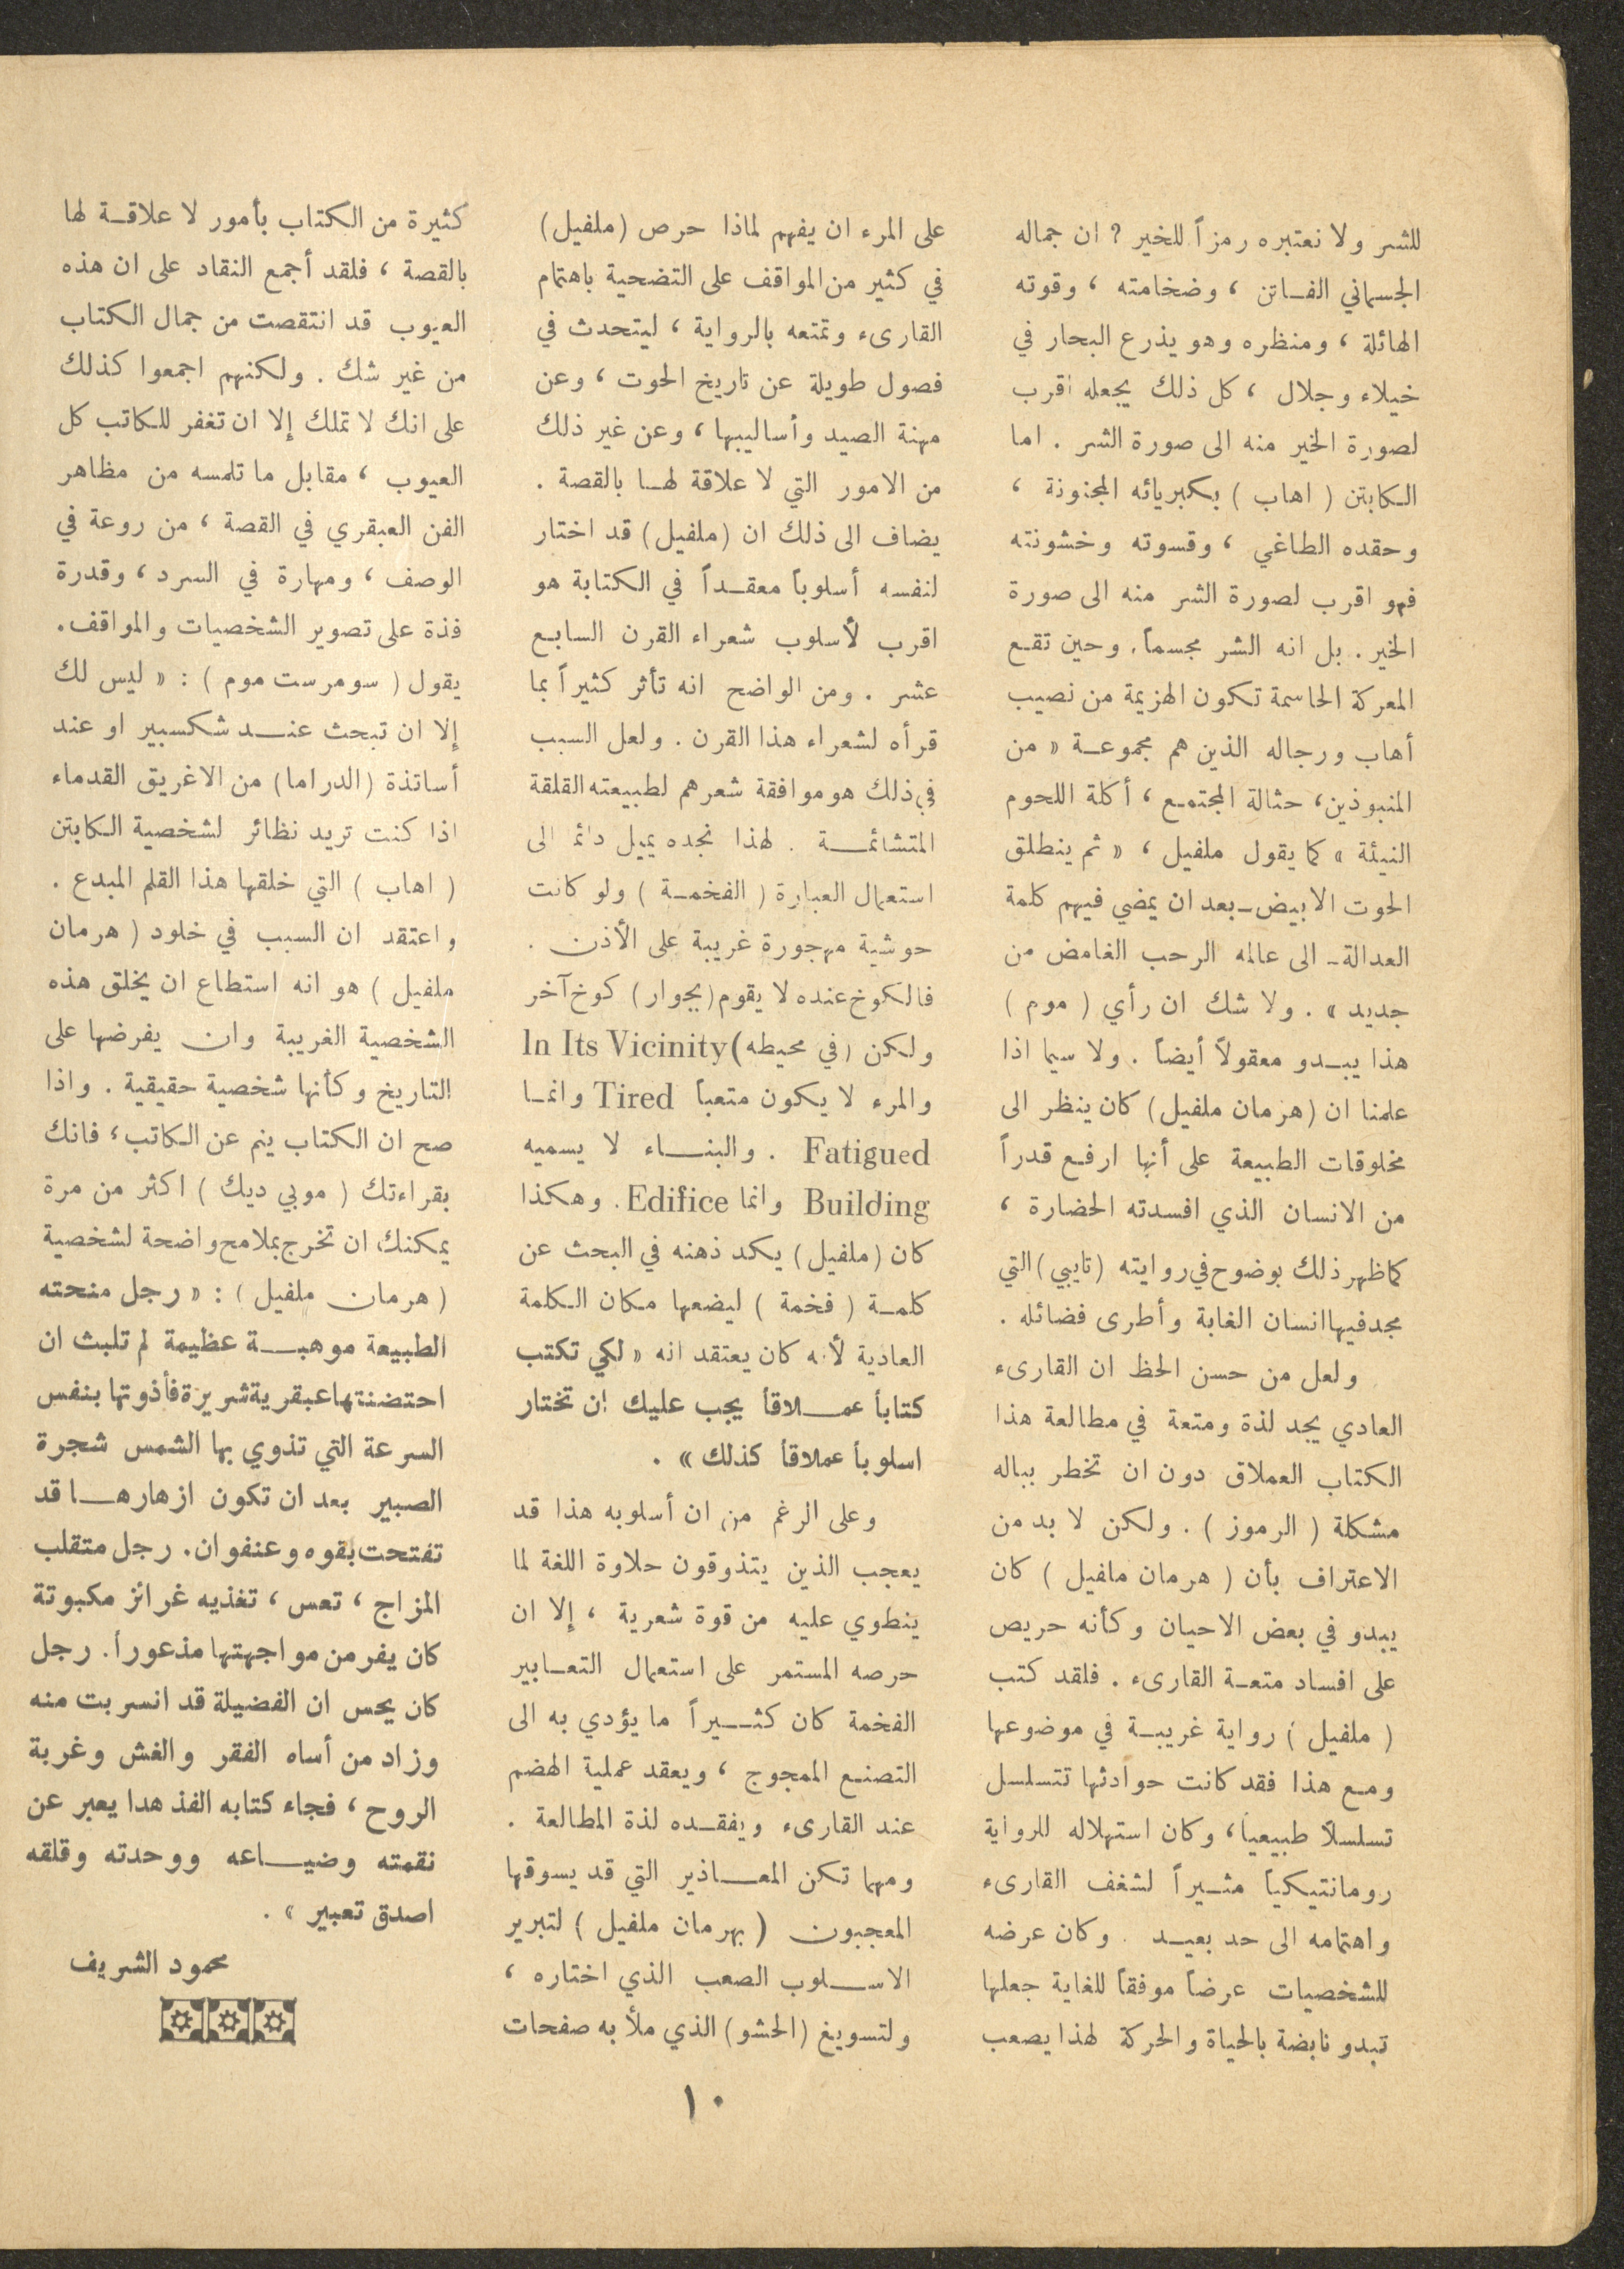 للشر ولا نعتبره رمزاً للخير ? ان جماله
الجسماني الفاتن ، وضخامته ، وقوته
الهائلة ، ومنظره وهو يذرع البحار في
خيلاء وجلال ، كل ذلك يجعله اقرب
لصورة الخير منه الى صورة الشر . اما
الكابتن ( اهاب ) بكبريائه المجنونة ،
وحقده الطاغي ، وقسوته وخشونته
فهو اقرب لصورة الشر منه الى صورة
الخير . بل انه الشر مجسماً . وحين تقع
المعركة الحاسمة تكون الهزيمة من نصيب
أهاب ورجاله الذين هم مجموعة « من
المنبوذين، حثالة المجتمع ، أكلة اللحوم
النيئة » كما يقول ملفيل ، « ثم ينطلق
الحوت الابيض - بعد ان يمضي فيهم كلمة
العدالة - الى عالمه الرحب الغامض من
جديد » . ولا شك ان رأي ( موم )
هذا يبدو معقولاً أيضاً . ولا سيما اذا
علمنا ان (هرمان ملفيل) كان ينظر الى
مخلوقات الطبيعة على أنها ارفع قدراً
من الانسان الذي افسدته الحضارة ،
كما ظهر ذلك بوضوح في روايته (تايبي) التي
مجد فيها انسان الغابة وأطرى فضائله .
ولعل من حسن الحظ ان القارىء
العادي يجد لذة ومتعة في مطالعة هذا
الكتاب العملاق دون ان تخطر بباله
مشكلة ( الرموز ) . ولكن لا بد من
الاعتراف بأن ( هرمان ملفيل ) كان
يبدو في بعض الاحيان وكأنه حريص
على افساد متعة القارىء . فلقد كتب
( ملفيل ) رواية غريبة في موضوعها
ومع هذا فقد كانت حوادثها تتسلسل
تسلسلاً طبيعياً ، وكان استهلاله للرواية
رومانتيكياً مثيراً لشغف القارىء
واهتمامه الى حد بعيد . وكان عرضه
للشخصيات عرضاً موفقاً للغاية جعلها
تبدو نابضة بالحياة والحركة لهذا يصعب
على المرء ان يفهم لماذا حرص (ملفيل)
في كثير من المواقف على التضحية باهتمام
القارىء وتمتعه بالرواية ، ليتحدث في
فصول طويلة عن تاريخ الحوت ، وعن
مهنة الصيد وأساليبها ، وعن غير ذلك
من الامور التي لا علاقة لها بالقصة .
يضاف الى ذلك ان (ملفيل) قد اختار
لنفسه أسلوباً معقداً في الكتابة هو
اقرب لأسلوب شعراء القرن السابع
عشر . ومن الواضح انه تأثر كثيراً بما
قرأه لشعراء هذا القرن . ولعل السبب
في ذلك هو موافقة شعرهم لطبيعته القلقة
المتشائمة . لهذا نجده يميل دائماً الى
استعمال العبارة ( الفخمة ) ولو كانت
حوشية مهجورة غريبة على الأذن .
فالكوخ عنده لا يقوم (بجوار) كوخ آخر
ولكن (في محيطه) In Its Vicinity
والمرء لا يكون متعباً Tired وانما
Fatigued . والبناء لا يسميه
Building وانما Edifice . وهكذا
كان (ملفيل) يكد ذهنه في البحث عن
كلمة ( فخمة ) ليضعها مكان الكلمة
العادية لأنه كان يعتقد انه « لكي تكتب
كتاباً عملاقاً يجب عليك ان تختار
اسلوباً عملاقاً كذلك » .
وعلى الرغم من ان أسلوبه هذا قد
يعجب الذين يتذوقون حلاوة اللغة لما
ينطوي عليه من قوة شعرية ، إلا ان
حرصه المستمر على استعمال التعابير
الفخمة كان كثيراً ما يؤدي به الى
التصنع الممجوج ، ويعقد عملية الهضم
عند القارىء ويفقده لذة المطالعة .
ومهما تكن المعاذير التي قد يسوقها
المعجبون ( بهرمان ملفيل ) لتبرير
الاسلوب الصعب الذي اختاره ،
ولتسويغ (الحشو) الذي ملأ به صفحات
كثيرة من الكتاب بأمور لا علاقة لها
بالقصة ، فلقد أجمع النقاد على ان هذه
العيوب قد انتقصت من جمال الكتاب
من غير شك . ولكنهم اجمعوا كذلك
على انك لا تملك إلا ان تغفر للكاتب كل
العيوب ، مقابل ما تلمسه من مظاهر
الفن العبقري في القصة ، من روعة في
الوصف ، ومهارة في السرد ، وقدرة
فذة على تصوير الشخصيات والمواقف .
يقول ( سومرست موم ) : « ليس لك
إلا ان تبحث عند شكسبير او عند
أساتذة (الدراما) من الاغريق القدماء
اذا كنت تريد نظائر لشخصية الكابتن
( اهاب ) التي خلقها هذا القلم المبدع .
واعتقد ان السبب في خلود ( هرمان
ملفيل ) هو انه استطاع ان يخلق هذه
الشخصية الغريبة وان يفرضها على
التاريخ وكأنها شخصية حقيقية . واذا
صح ان الكتاب ينم عن الكاتب ، فانك
بقراءتك ( موبي ديك ) اكثر من مرة
يمكنك ان تخرج بملامح واضحة لشخصية
( هرمان ملفيل ) : « رجل منحته
الطبيعة موهبة عظيمة لم تلبث ان
احتضنتها عبقرية شريرة فأذوتها بنفس
السرعة التي تذوي بها الشمس شجرة
الصبير بعد ان تكون ازهارها قد
تفتحت بقوه وعنفوان . رجل متقلب
المزاج ، تعس ، تغذيه غرائز مكبوتة
كان يفر من مواجهتها مذعوراً . رجل
كان يحس ان الفضيلة قد انسربت منه
وزاد من أساه الفقر والغش وغربة
الروح ، فجاء كتابه الفذ هدا يعبر عن
نقمته وضياعه ووحدته وقلقه
اصدق تعبير » .
محمود الشريف
١٠